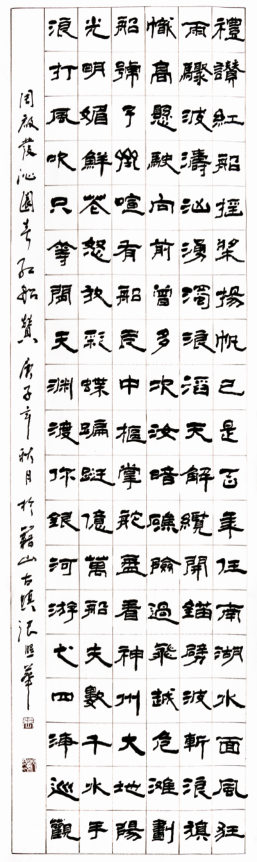 禮讚紅船摇槳揚帆已是百年任南湖水面風狂
雨驟波濤汹湧濁浪滔天解纜開錨劈波斬浪旗
幟高懸駛向前曾多次汝暗礁險過飛越危滩劃
船號子嘹喧有船老中樞掌舵盡看神州大地陽
光明媚鮮花怒放彩蝶蹁跹億萬船夫數千水手
浪打風吹只等閑天淵渡銀河游弋四海巡觀
周啟發沁園春红船赞庚子年秋月於籍山古張華